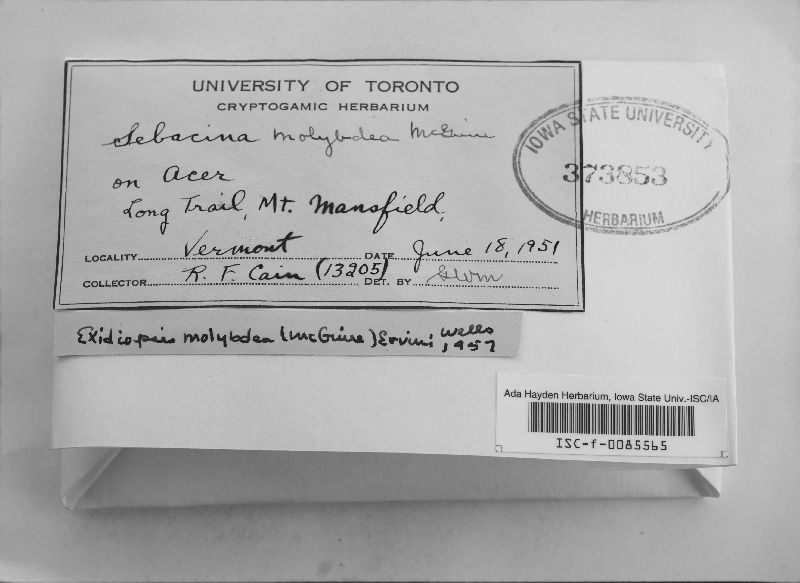 UNIVERSITY OF TORONTO
CRYPTOGAMIC HERBARIUM
Sebacina molybdea McGuire
on Acer
Long Trail, Mt. Mansfield,
LOCALITY Vermont DATE June 18, 1951
COLLECTOR R. F. Cain (13205) DET. BY GWM
IOWA STATE UNIVERSITY
373853
HERBARIUM
Exidiopsis molybdea (McGuire) Ervin; Wells, 1957
Ada Hayden Herbarium, Iowa State Univ.-ISC/IA
ISC-f-0085565